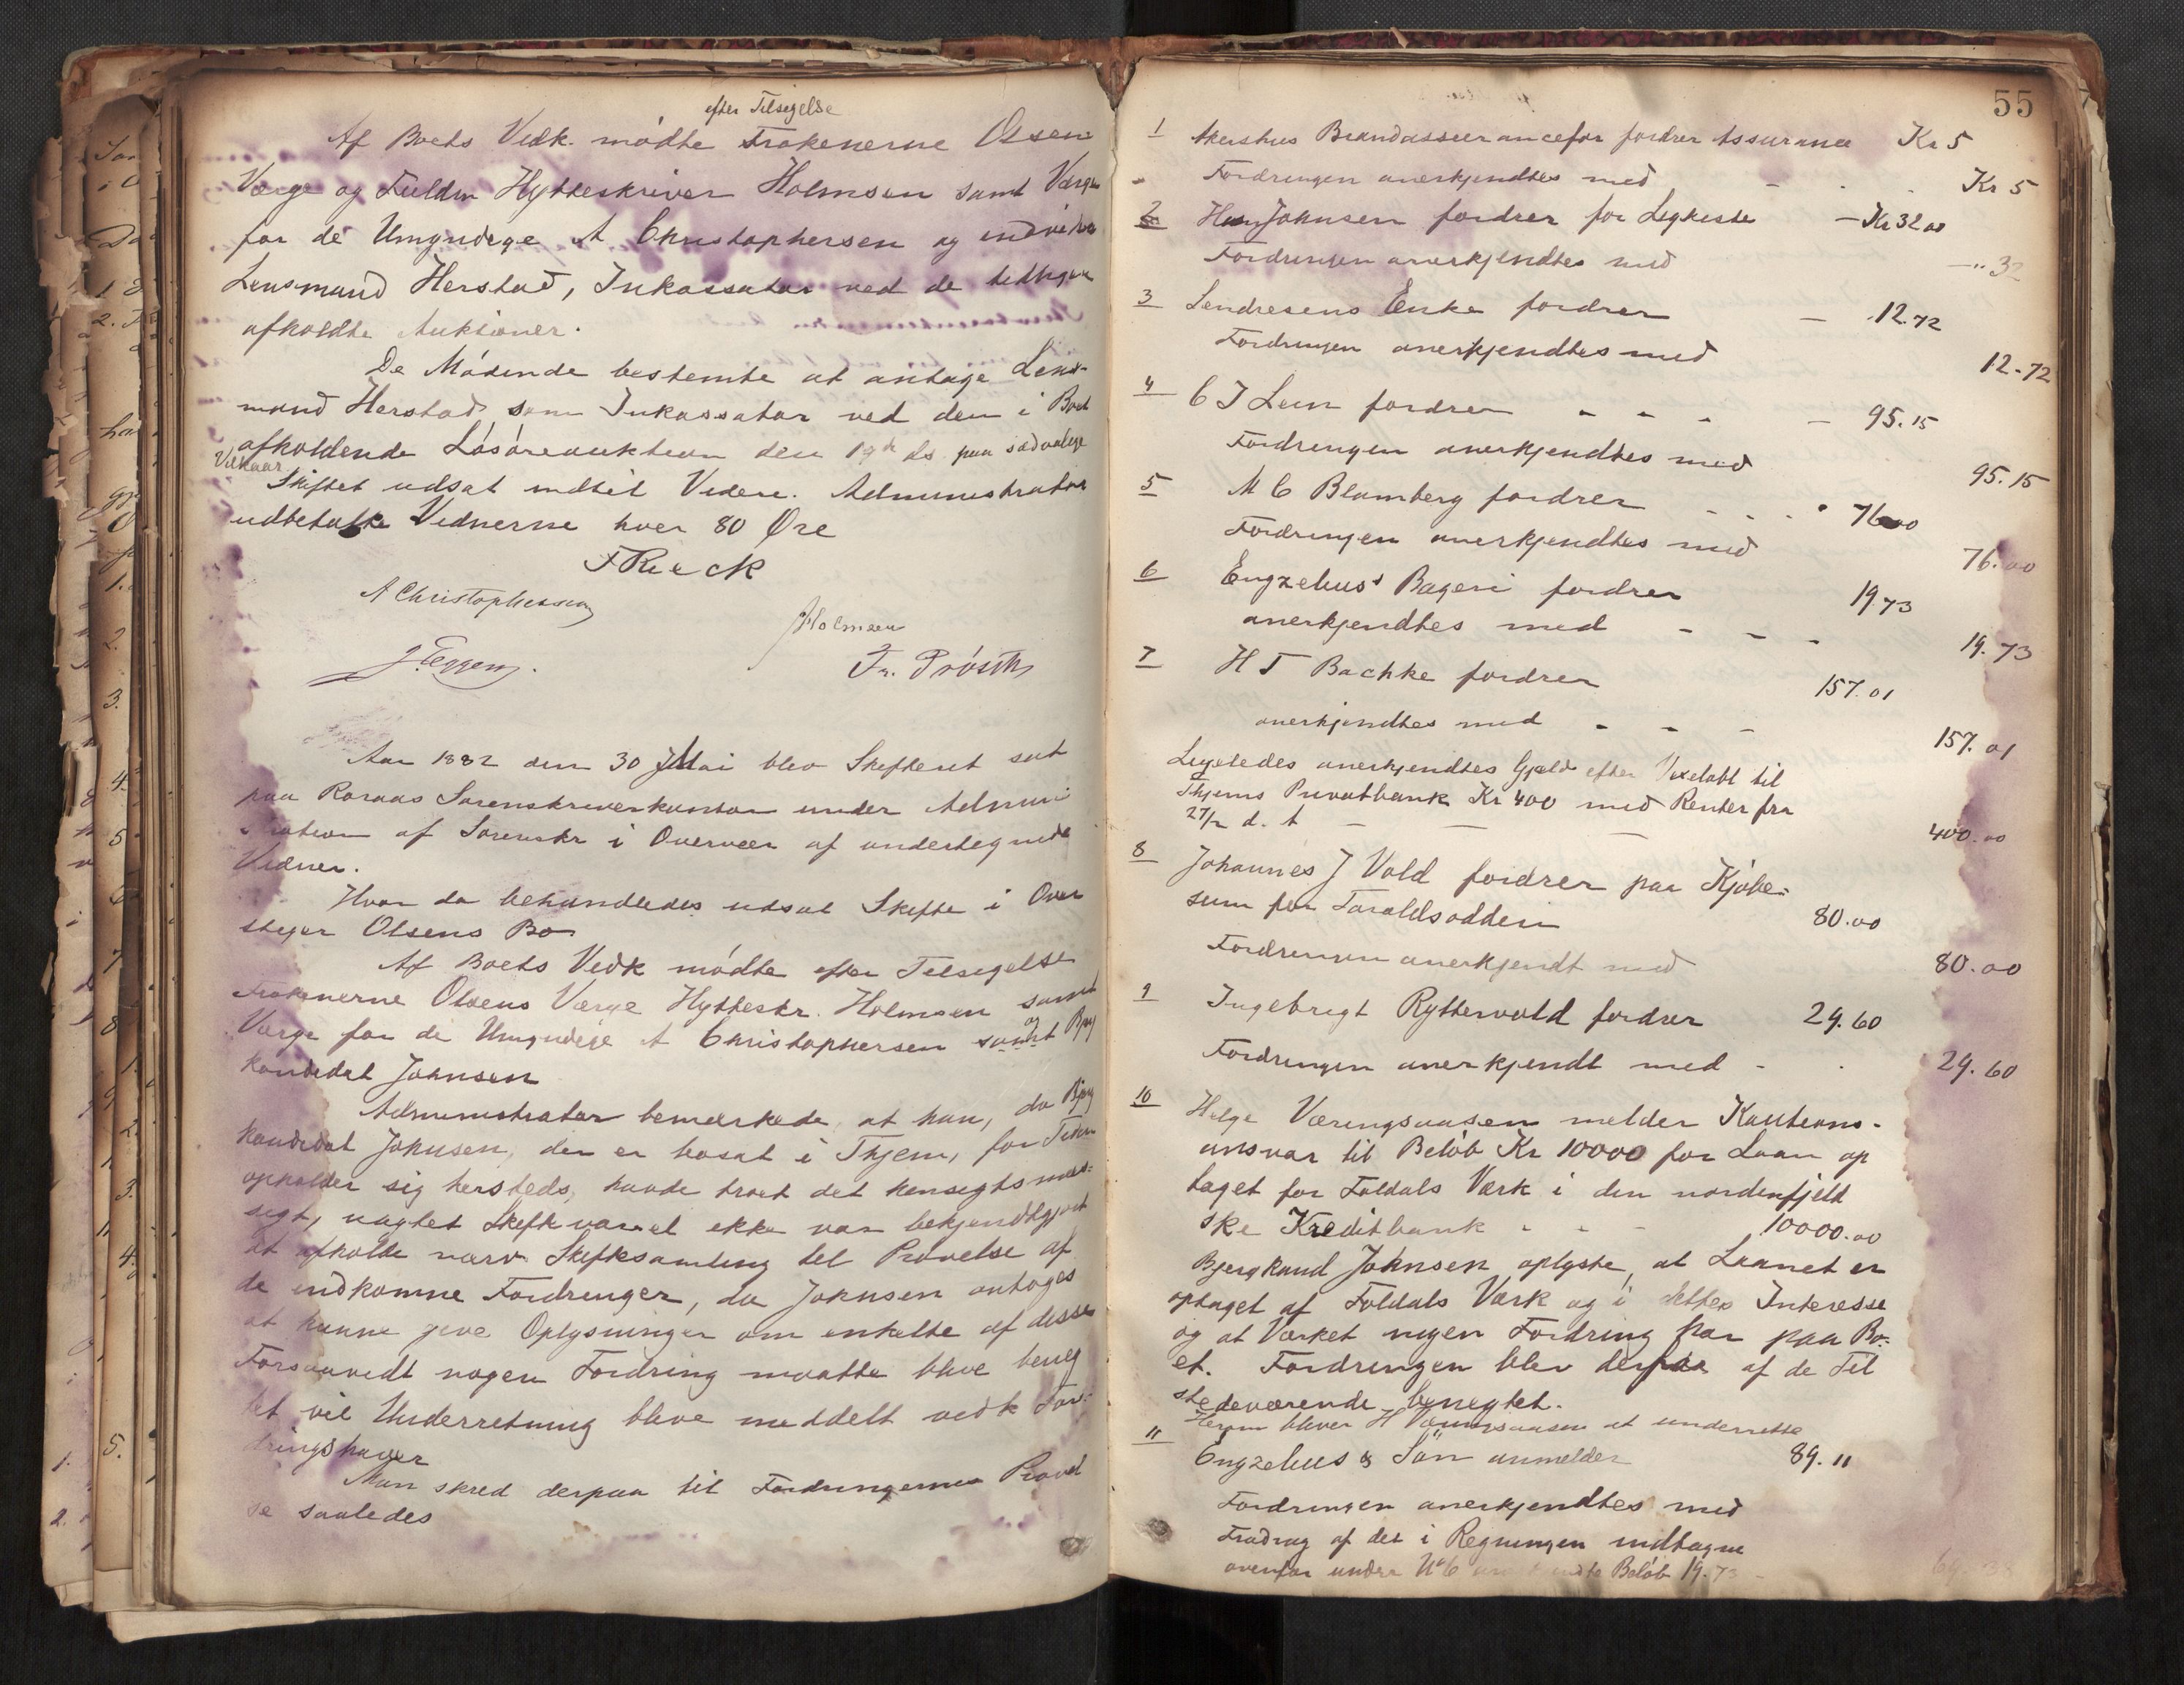 efter Tilsigelse
Af Boets Vedk. mødte Frøkenerne Olsens
Værge og Fuldm Hytteskriver Holmsen samt Værge
for de Umyndige A Christophersen og endvidere
Lensmand Herstad, Inkassator ved de tidligere
afholdte Auktioner.
De Mødende bestemte at antage Lens-
mand Herstad som Inkassator ved den i Boet
afholdende Løsøreauktion den 19de ds. paa sædvanlige
Vilkaar.
Skiftet udsat indtil Videre. Administrator
udbetalte Vidnerne hver 80 Øre
F Rieck
A Christophersen
J Holmsen
J. Eggen.
Fr. Prøsch
Aar 1882 den 30 Mai blev Skifteret sat
paa Røraas Sorenskriverkontor under Admini
stration af Sorenskr i Overvær af undertegnede
Vidner.
Hvor da behandledes udsat Skifte i Over
stiger Olsens Bo
Af Boets Vedk mødte efter Tilsigelse
Frøkenerne Olsens Værge Hytteskr. Holmsen samt
Værge for de Umyndige A Christophersen samt og Bjerg
kandidat Johnsen
Administrator bemærkede, at han, da Bjerg
kandidat Johnsen, der er bosat i Thjem, for Tiden
opholder sig hersteds, havde troet det hensigtsmæs-
sigt, uagtet Skiftevarsel ikke var bekjendtgjort
at afholde nærv. Skiftesamling til Prøvelse af
de indkomne Fordringer, da Johnsen antoges
at kunne give Oplysninger om enkelte af disse
Forsaavidt nogen Fordring maatte blive beneg
tet vil Underretning blive meddelt vedk For-
dringshaver
Man skred derpaa til Fordringernes Prøvel
se saaledes
55
1 Akershus Brandassuranceforr fordrer Assurance Kr 5
Fordringen anerkjendtes med - - - Kr 5
2 Johnsen fordrer for Ligkiste - Kr 32 00
Fordringen anerkjendtes med - " 32
3 Lendresens Enke fordrer - 12.72
Fordringen anerkjendtes med 12.72
4 C J Lein fordrer - - - - 95.15
Fordringen anerkjendtes med 95.15
5 M C Blomberg fordrer - - - 76.00
Fordringen anerkjendtes med 76.00
6 Engzelius's Bageri fordrer 19.73
anerkjendtes med - - - 19.73
7 H T Bachke fordrer 157.01
anerkjendtes med - - - 157.01
Ligeledes anerkjendtes Gjeld efter Vexelobl til
Thjems Privatbank Kr 400 med Renter fra
27/2 d. A - - - 400.00
8 Johannes J Vold fordrer paa Kjøbe-
sum for Taraldsodden 80.00
Fordringen anerkjendt med 80.00
9 Ingebrigt Ryttervold fordrer 29.60
Fordringen anerkjendt med - - 29.60
10 Helge Væringsaasen melder Kautions-
ansvar til Beløb Kr 10000 for Laan op
taget for Foldals Værk i den nordenfjeld
ske Kreditbank - - - 10000.00
Bjergkand Johnsen oplyste, at Laanet er
optaget af Foldals Værk og i dettes Interesse
og at Værket ingen Fordring har paa Bo-
et. Fordringen blev derpaa af de Til
stedeværende benegtet.
Herom bliver H Væringsaasen at underrette
11 Engzelius & Søn anmelder 89.11
Fordringen anerkjendtes med
Fradrag af det i Regningen indtagne
ovenfor under No 6 anerkjendte Beløb 19.73 -